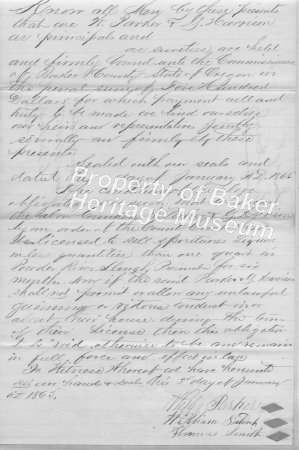 Know all Men by these presents
that we W. Parker & G. Harrison
as principals and
as sureties are held
and firmly bound unto the Commissioners
of Baker County State of Oregon in
the penal sum of Five Hundred
Dollars for which payment well and
truly to be made we bind ourselves
our heirs and representatives jointly
severally and firmly by these
presents.
Sealed with our seals and
dated day of January A.D. 1865
Property of Baker
Heritage Museum
obligation
by an order of the Court
licensed to sell spirituous liquors
in less quantities than one quart in
Powder River Slough Precinct for six
months now if the said Parker & Harrison
shall not permit or allow any unlawful
gaming or riotous conduct in or
about their house during the term
of their License then this obligation
to be void otherwise to be and remain
in full force and effect in law
In Witness Whereof we have hereunto
set our hands & seals this 3 day of January
AD 1865.
Parker
William
Thomas Smith